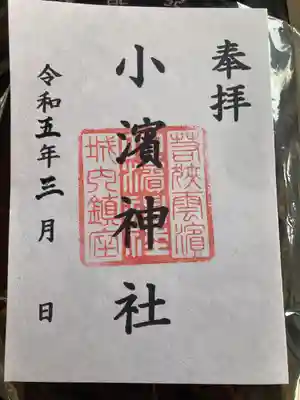 奉拝
小濱神社
若狭雲濱
小濱神社
城内鎮座
令和五年三月　日